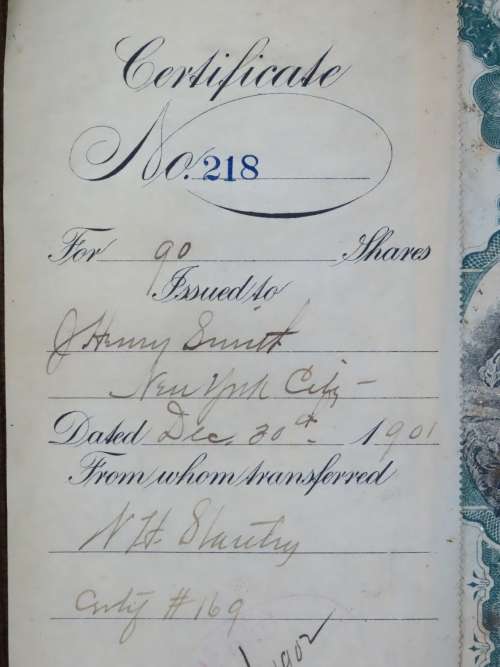 Certificate
No. 218
For 90 Shares
Issued to
J Henry Smith
New York City -
Dated Dec. 30th. 1901
From whom transferred
N. H.
Certif #169
1902